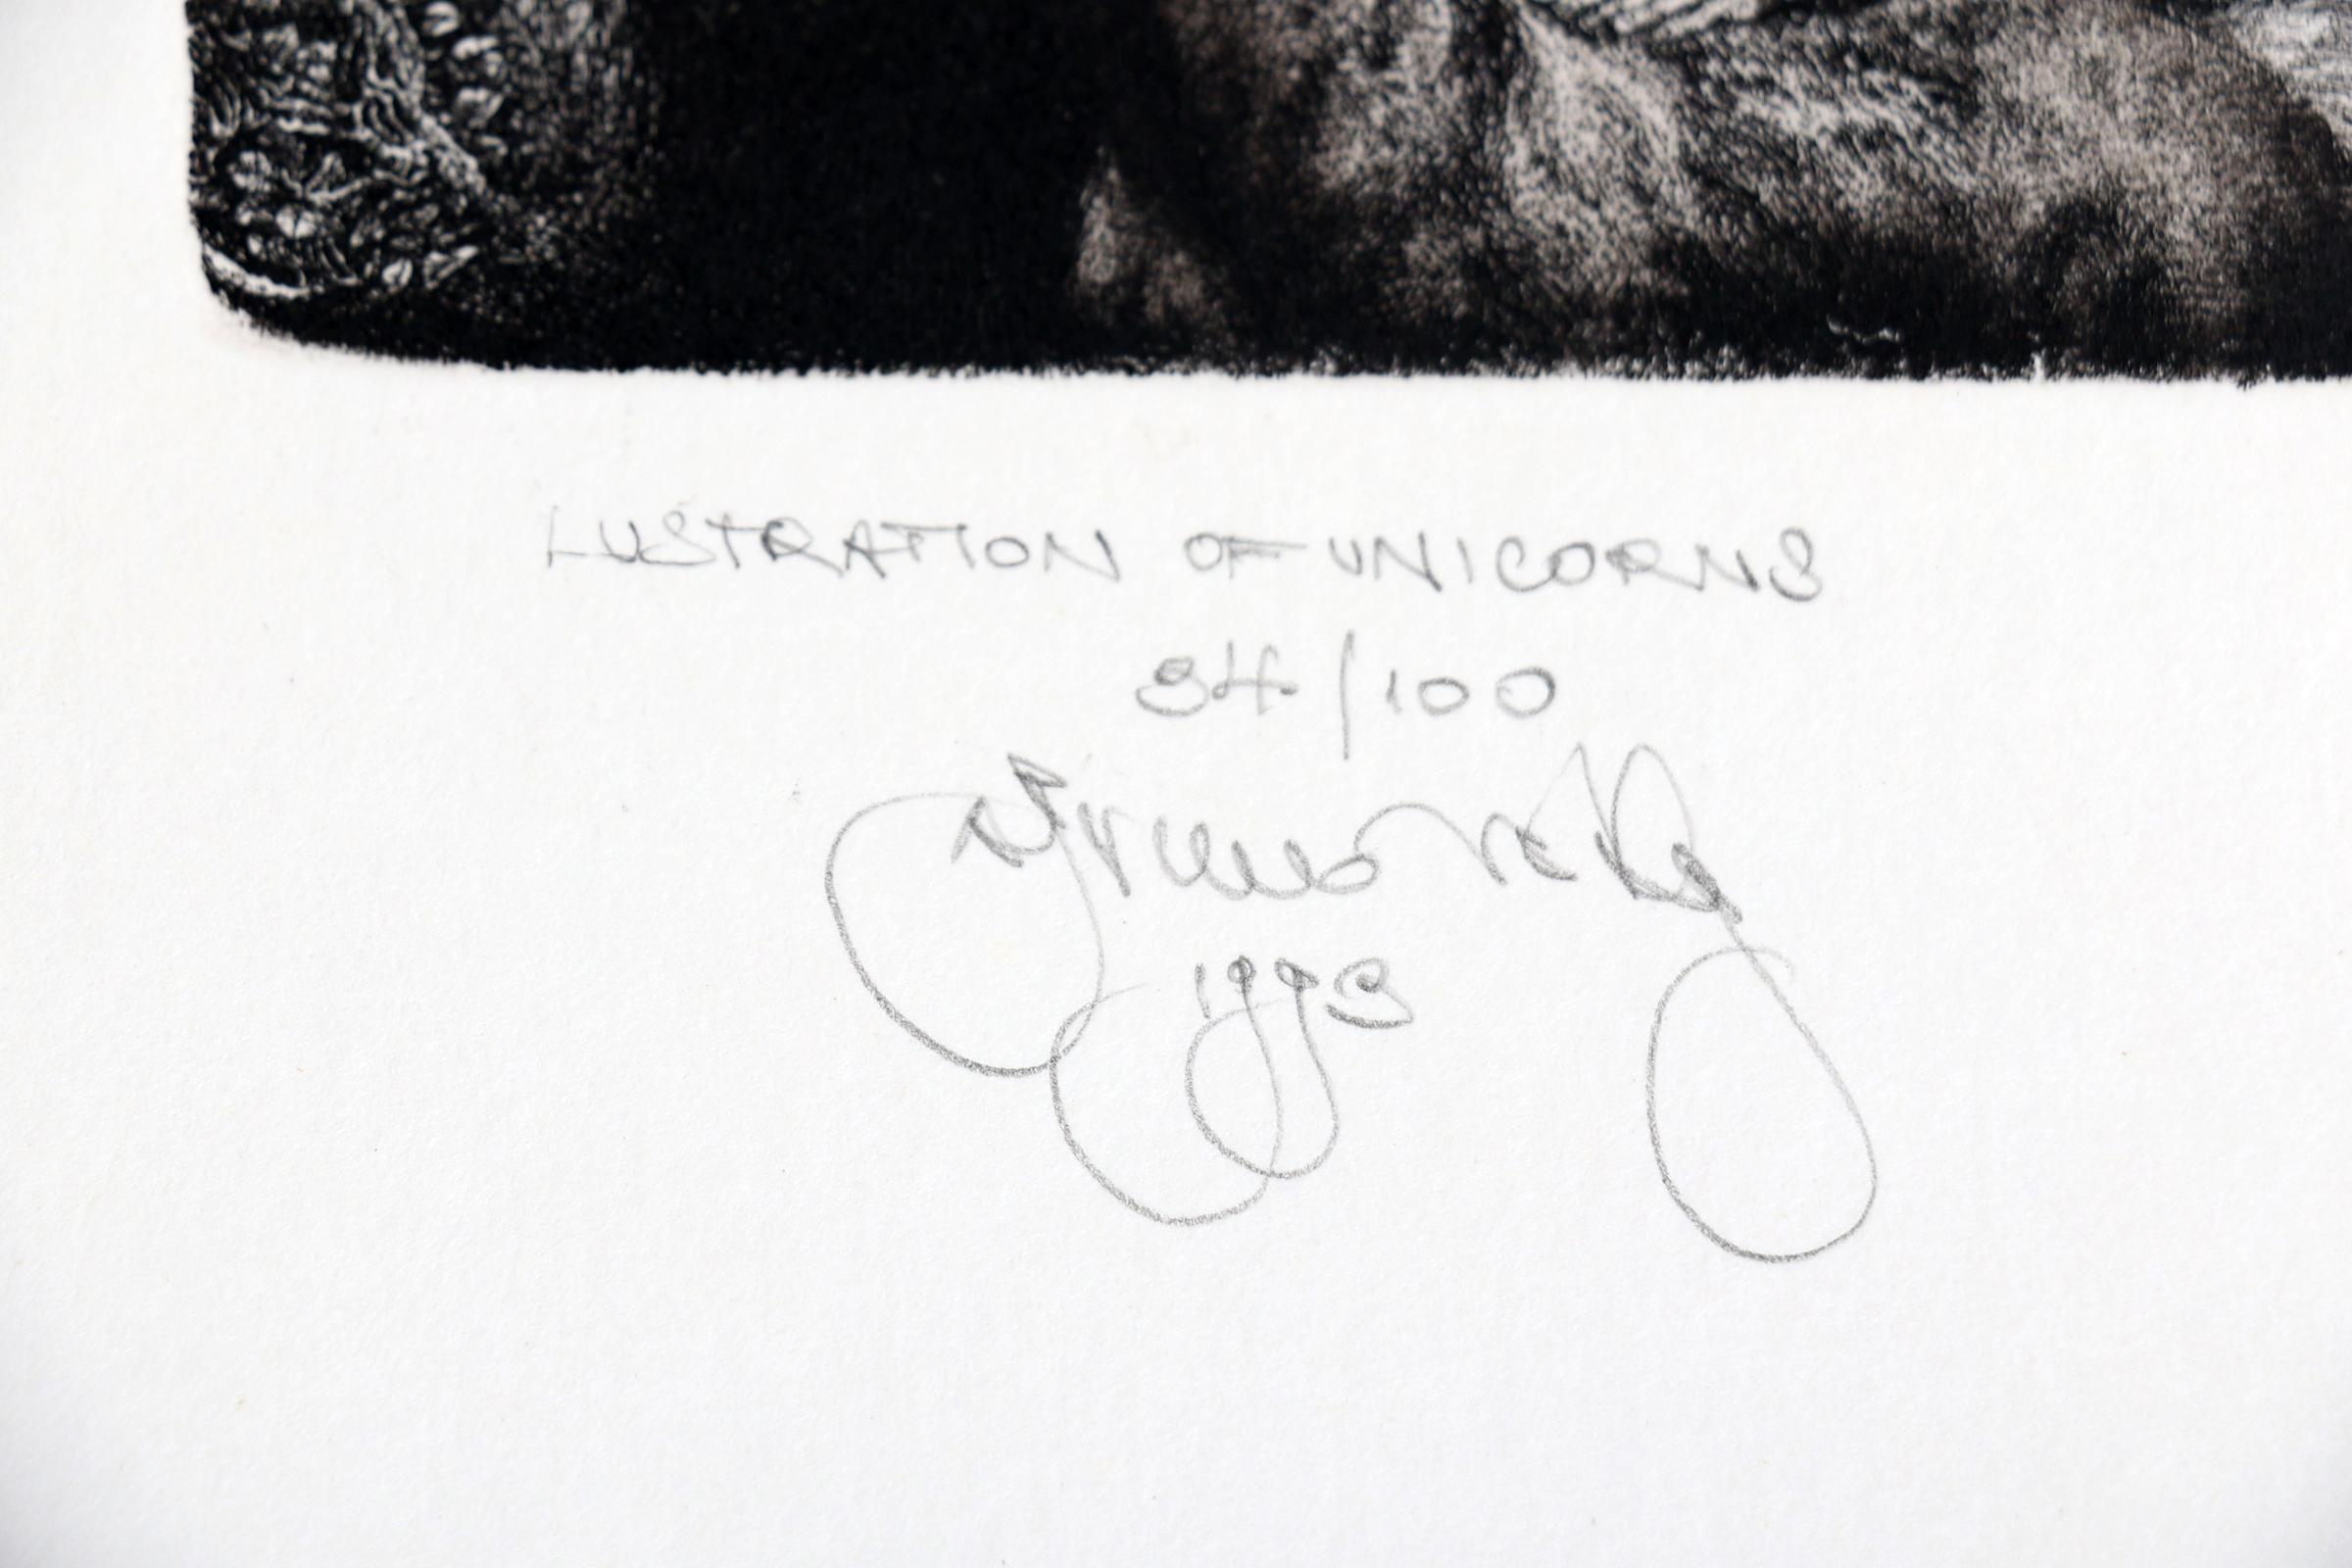 LUSTRATION OF UNICORNS
34/100
1993